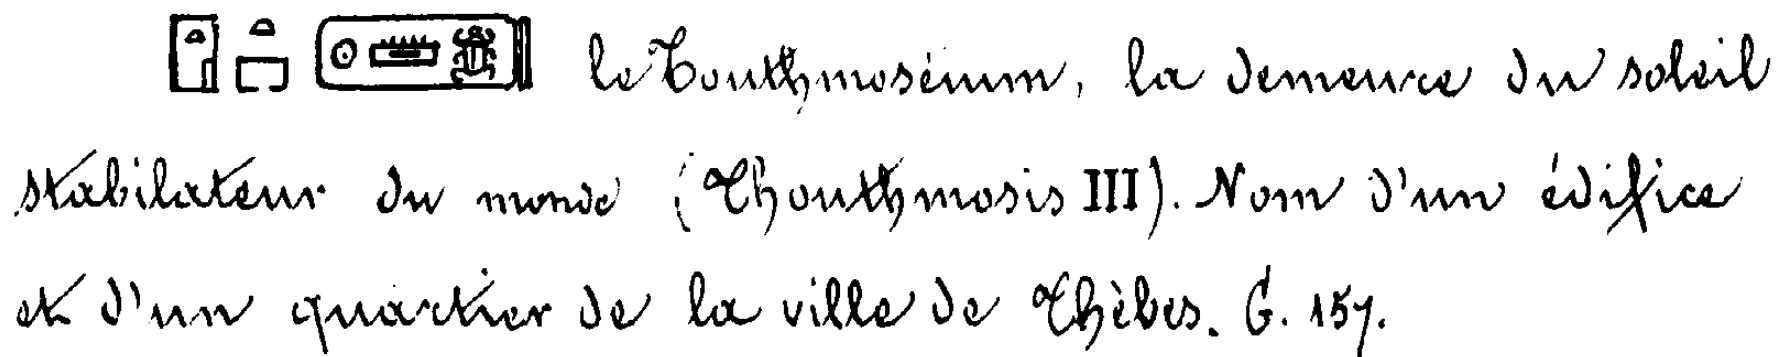 𓉞𓏏𓉐𓍹𓇳𓏠𓆣𓍺 le Touthmoséum, la demeure du soleil
stabilateur du monde (Thouthmosis III). Nom d'un édifice
et d'un quartier de la ville de Thèbes. G. 157.